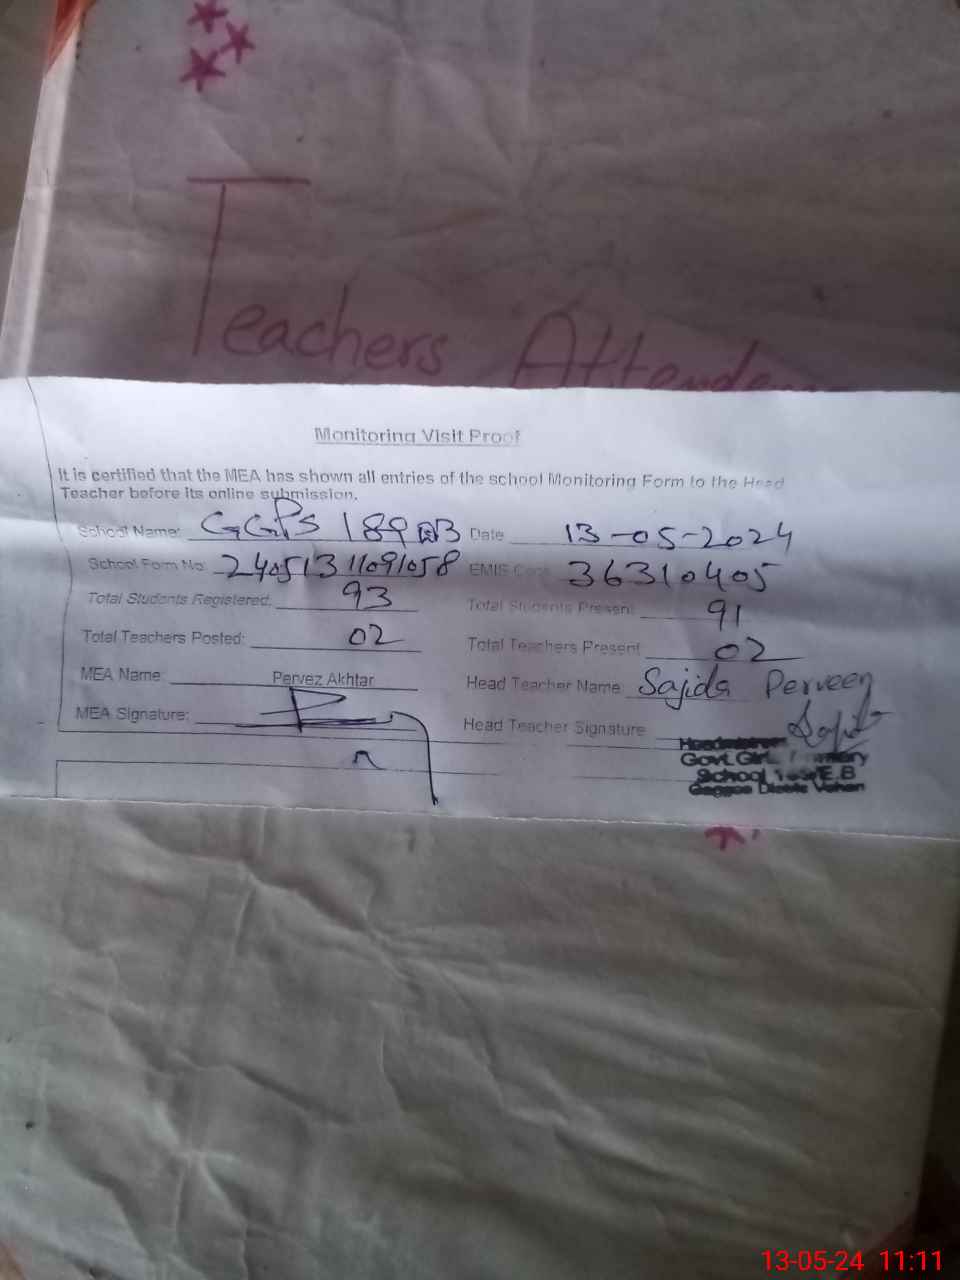 Teachers Attendan
Monitoring Visit Proof
It is certified that the MEA has shown all entries of the school Monitoring Form to the Head
Teacher before its online submission.
School Name: GGPS 189 EB Date 13-05-2024
School Form No: 24051311091058 EMIS Code 36310405
Total Students Registered: 93 Total Students Present 91
Total Teachers Posted: 02 Total Teachers Present 02
MEA Name: Pervez Akhtar Head Teacher Name Sajida Perveen
MEA Signature: Head Teacher Signature
Headmistress
Govt. Girls Primary
School E.B
Gaggoo Distt: Vehari
13-05-24 11:11